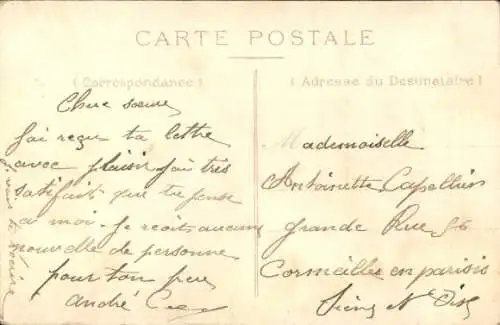 CARTE POSTALE
(Correspondance)
Chere soeur
J'ai reçu ta lettre
avec plaisir j'ai très
satisfait que tu pense
a moi. Je recoit aucune
nouvelle de personne
pour ton frere
andré
(Adresse du Destinataire)
Mademoiselle
Antoinette Capellier
grande Rue 56
Cormeilles en parisis
Seine et Oise